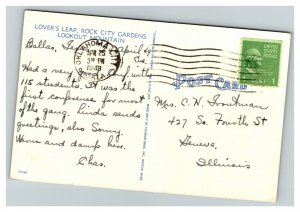 LOVER'S LEAP, ROCK CITY GARDENS
LOOKOUT MOUNTAIN
OKLAHOMA CITY
APR 25
5 PM
1949
OKLA.
POST CARD
Dallas, April 24
Had a very with
115 students. It was the
first conference for most
of the gang. Linda sends
greetings, also Sonny.
Warm and damp here.
Chas.
Mrs. C. H.
427 So. Fourth St
Geneva,
Illinois